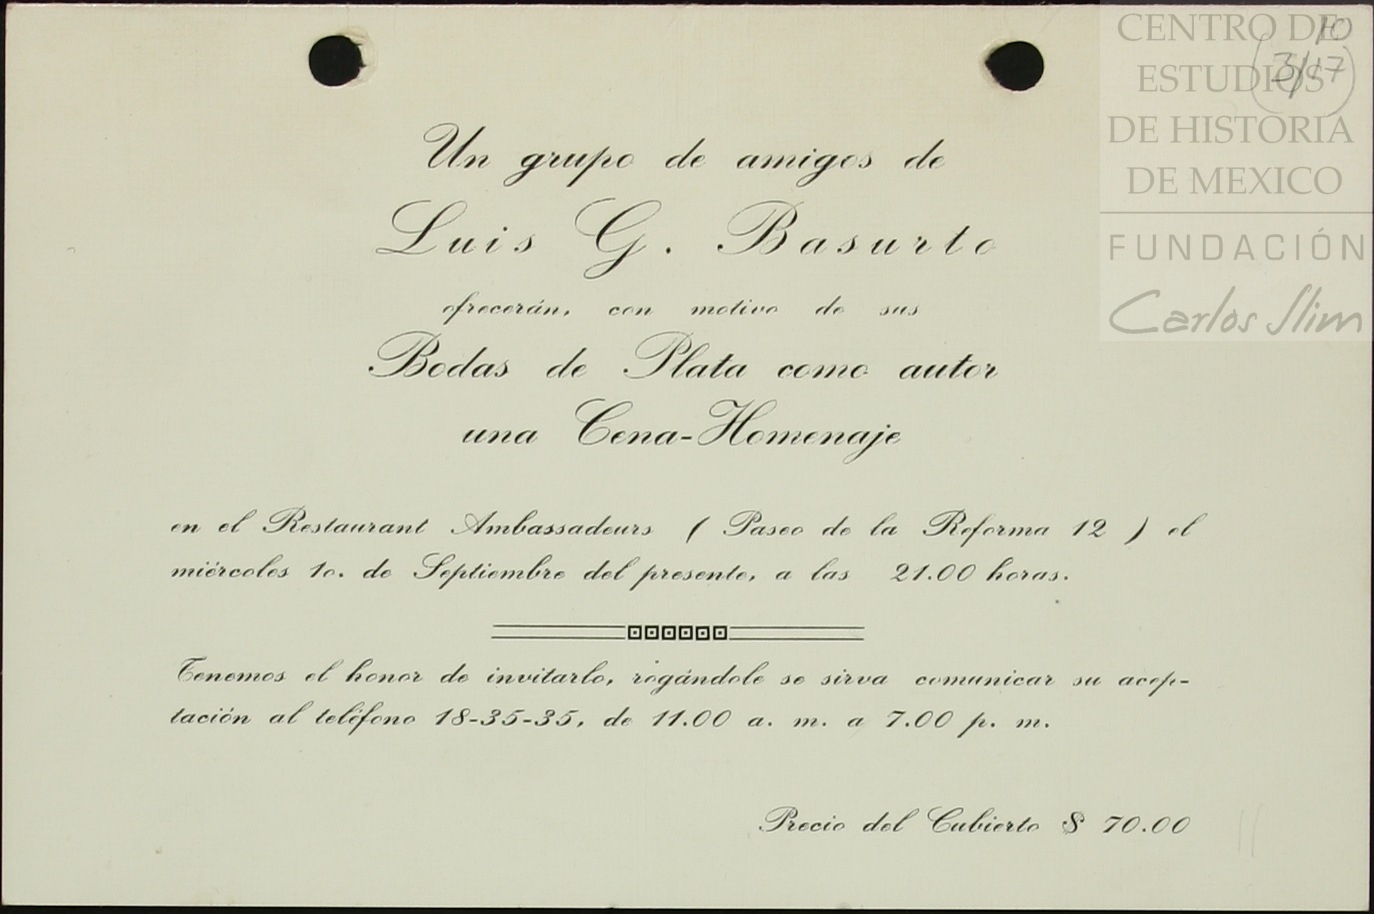 CENTRO DE
ESTUDIOS
DE HISTORIA
DE MEXICO
FUNDACIÓN
Carlos Slim
3/17
Un grupo de amigos de
Luis G. Basurto
ofrecerán, con motivo de sus
Bodas de Plata como autor
una Cena-Homenaje
en el Restaurant Ambassadeurs ( Paseo de la Reforma 12 ) el
miércoles 1o. de Septiembre del presente, a las 21.00 horas.
Tenemos el honor de invitarlo, rogándole se sirva comunicar su acep-
tación al teléfono 18-35-35, de 11.00 a. m. a 7.00 p. m.
Precio del Cubierto $ 70.00